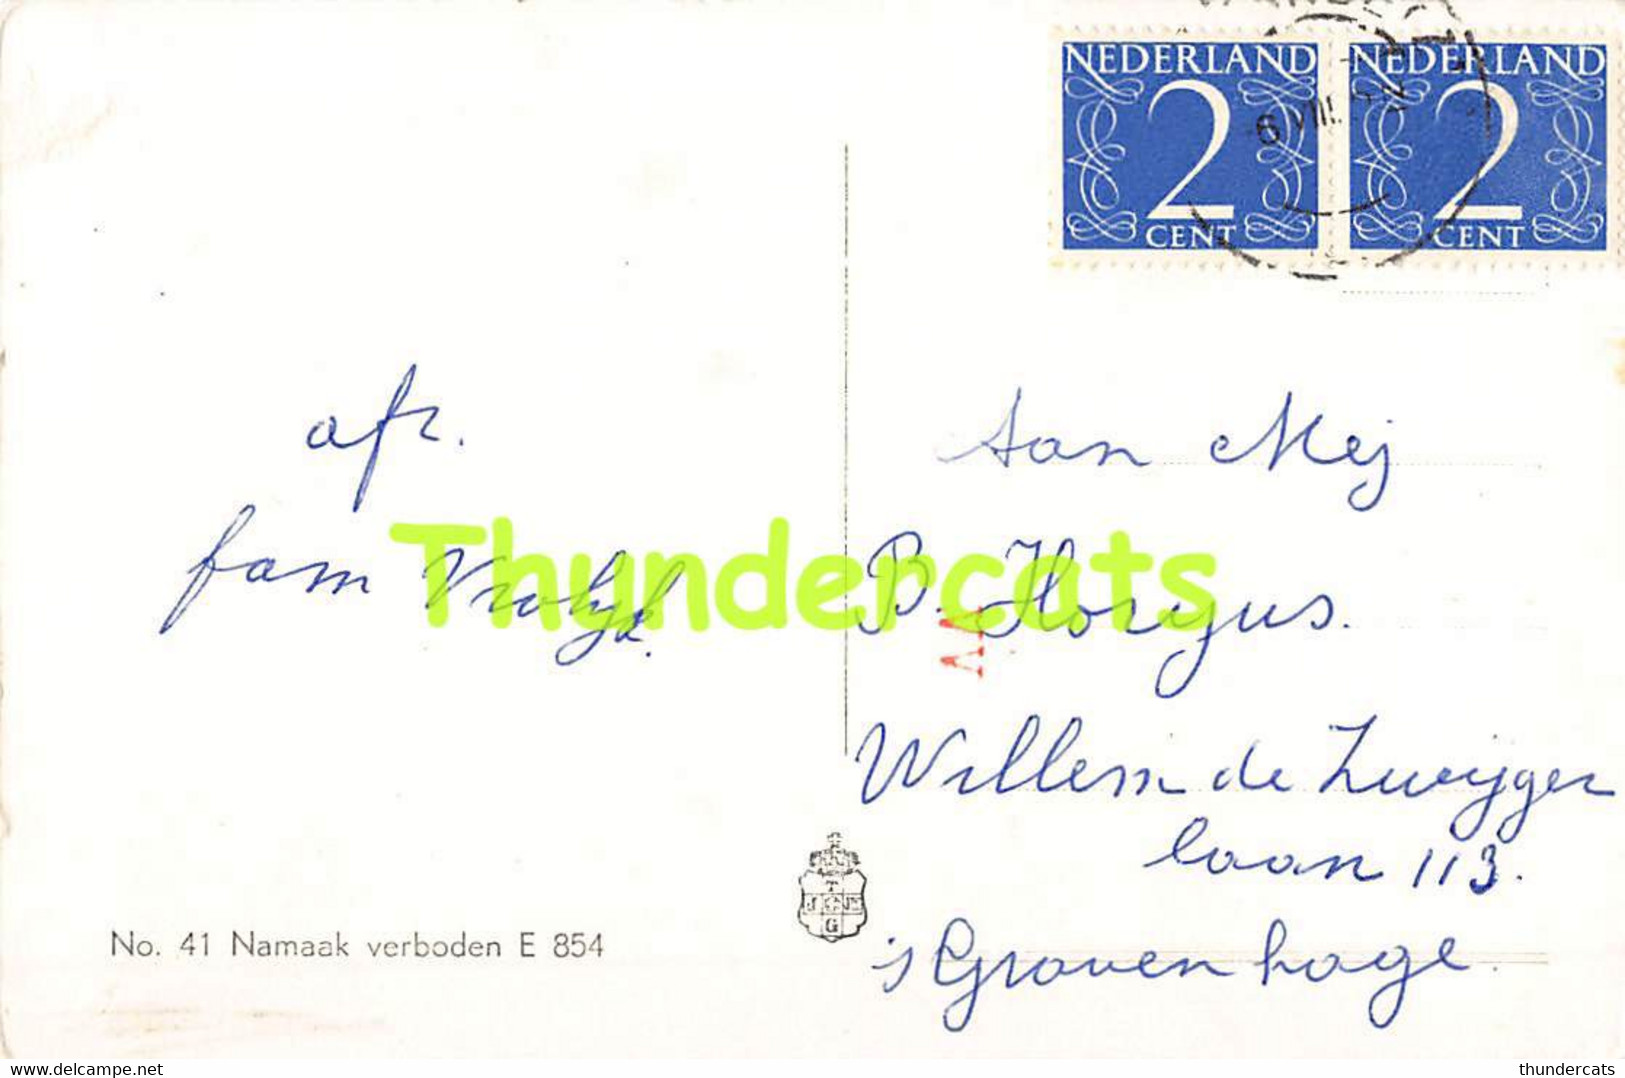 NEDERLAND NEDERLAND
2 2
CENT CENT
6 VIII
afz.
fam Vrolijk.
Aan Mej
B. Horyus.
Willem de Zwijger
laan 113.
's Gravenhage.
T
G
No. 41 Namaak verboden E 854
Thundercats
www.delcampe.net
thundercats